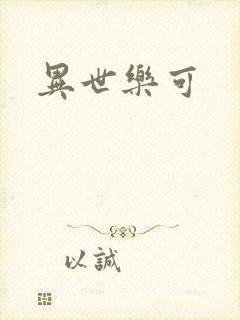 異世樂可
以誠